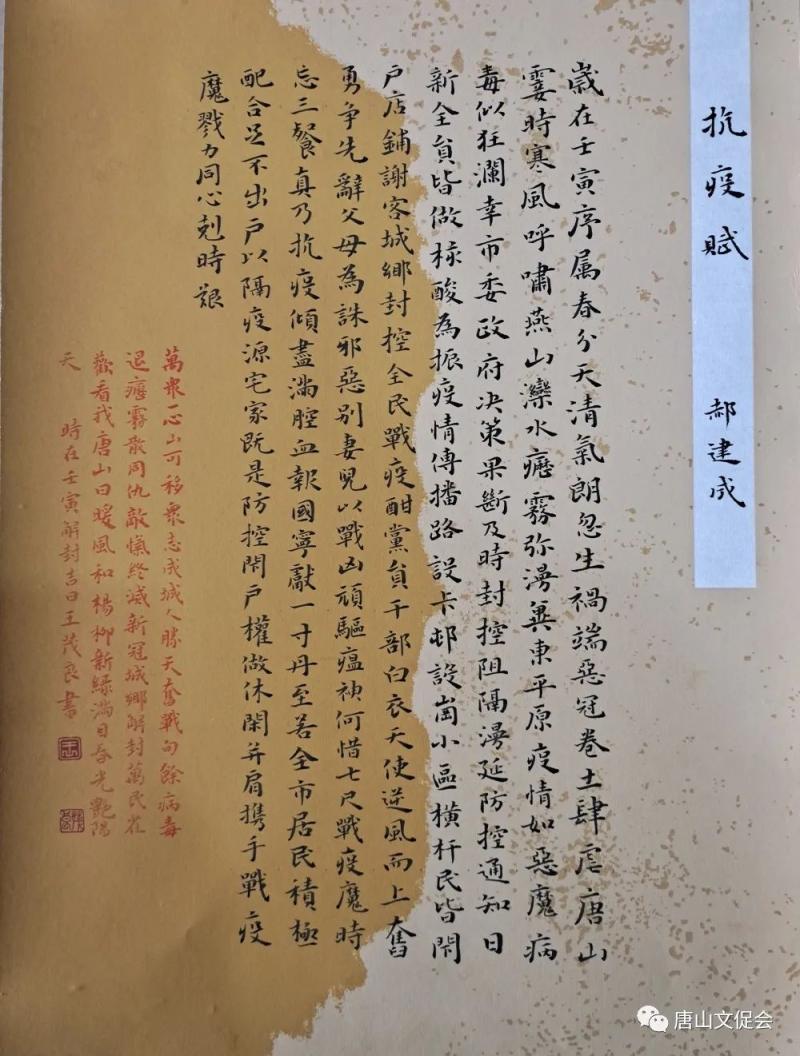 抗疫賦
郝建成
歲在壬寅序属春分天清氣朗忽生禍端惡冠卷土肆虐唐山
霎時寒風呼嘯燕山灤水瘧霧弥漫冀東平原疫情如惡魔病
毒似狂瀾幸市委政府决策果斷及時封控阻隔漫延防控通知日
新全員皆做核酸為振疫情傳播路設卡邨設崗小區橫杆民皆閇
户店鋪謝客城鄉封控全民戰疫酣黨員干部白衣天使逆風而上奮
勇争先辭父母為誅邪惡别妻兒以戰凶頑驅瘟神何惜七尺戰疫魔時
忘三餐真乃抗疫傾盡滿腔血報國寧獻一寸丹至若全市居民積極
配合足不出户以隔疫源宅家既是防控閇户權做休閑并肩携手戰疫
魔戮力同心剋時艱
萬衆一心山可移衆志成城人勝天奮戰旬餘病毒
退瘧霧散同仇敵愾終滅新冠城鄉解封萬民雀
歡看我唐山日暖風和楊柳新緑滿目春光艷陽
天 時在壬寅解封吉日王茂良書
唐山文促会